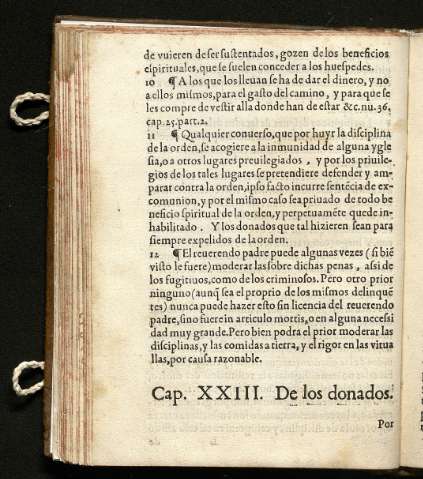 de vuieren de ser sustentados, gozen de los beneficios
espirituales, que se suelen conceder a los huespedes.
10 ¶ A los que los lleuan se ha de dar el dinero, y no
a ellos mismos, para el gasto del camino, y para que se
les compre de vestir alla donde han de estar &c. nu. 36.
cap. 25. part. 2.
11 ¶ Qualquier conuerso, que por huyr la disciplina
de la orden, se acogiere a la inmunidad de alguna ygle
sia, o a otros lugares preuilegiados, y por los priuile-
gios de los tales lugares se pretendiere defender y am-
parar contra la orden, ipso facto incurre sentẽcia de ex-
comunion, y por el mismo caso sea priuado de todo be
neficio spiritual de la orden, y perpetuamẽte quede in-
habilitado. Y los donados que tal hizieren sean para
siempre expelidos de la orden.
12 ¶ El reuerendo padre puede algunas vezes (si biẽ
visto le fuere) moderar las sobre dichas penas, assi de
los fugitiuos, como de los criminosos. Pero otro prior
ninguno (aunq̃ sea el proprio de los mismos delinquẽ
tes) nunca puede hazer esto sin licencia del reuerendo
padre, sino fuere in articulo mortis, o en alguna necessi
dad muy grande. Pero bien podra el prior moderar las
disciplinas, y las comidas a tierra, y el rigor en las vitua
llas, por causa razonable.
Cap. XXIII. De los donados.
Por